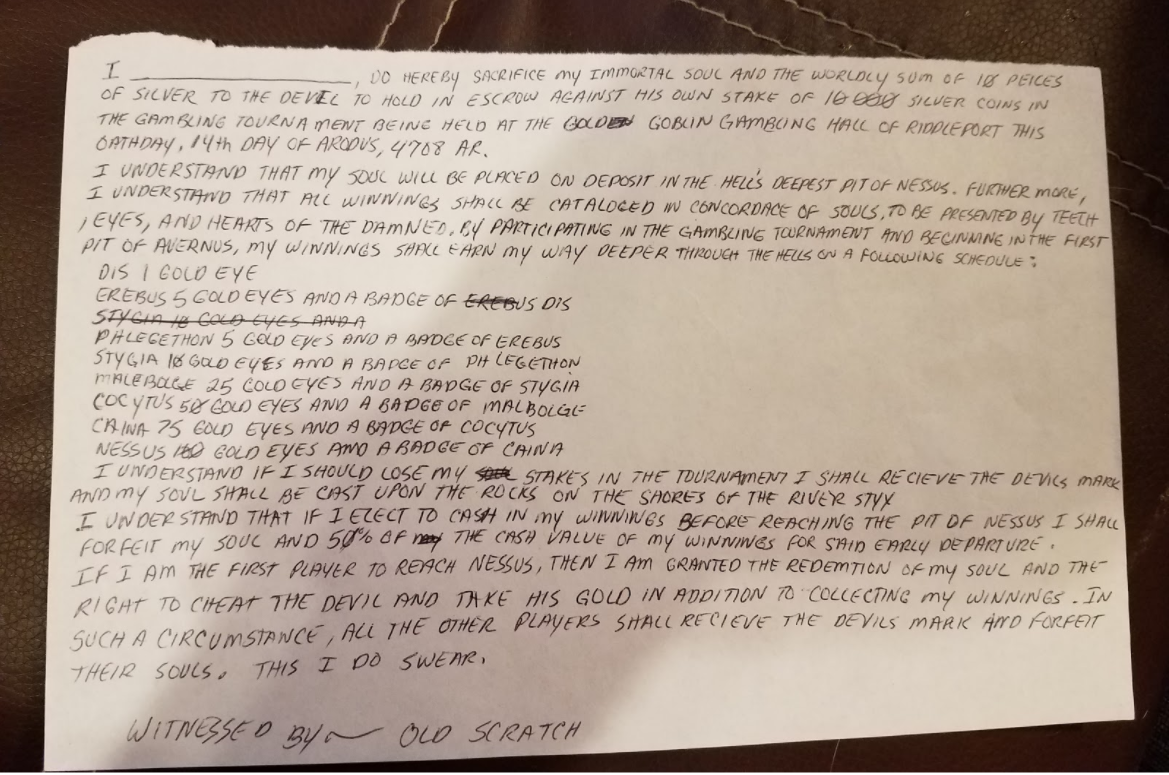 I _______________, DO HEREBY SACRIFICE MY IMMORTAL SOUL AND THE WORLDLY SUM OF 10 PEICES
OF SILVER TO THE DEVIL TO HOLD IN ESCROW AGAINST HIS OWN STAKE OF 10 000 SILVER COINS IN
THE GAMBLING TOURNAMENT BEING HELD AT THE GOLDEN GOBLIN GAMBLING HALL OF RIDDLEPORT THIS
OATHDAY, 14th DAY OF ARODUS, 4708 AR.
I UNDERSTAND THAT MY SOUL WILL BE PLACED ON DEPOSIT IN THE HELL'S DEEPEST PIT OF NESSUS. FURTHER MORE,
I UNDERSTAND THAT ALL WINNINGS SHALL BE CATALOGED IN CONCORDACE OF SOULS, TO BE PRESENTED BY TEETH
, EYES, AND HEARTS OF THE DAMNED. BY PARTICIPATING IN THE GAMBLING TOURNAMENT AND BEGINNING IN THE FIRST
PIT OF AVERNUS, MY WINNINGS SHALL EARN MY WAY DEEPER THROUGH THE HELLS ON A FOLLOWING SCHEDULE:
DIS 1 GOLD EYE
EREBUS 5 GOLD EYES AND A BADGE OF EREBUS DIS
STYGIA 10 GOLD EYES AND A
PHLEGETHON 5 GOLD EYES AND A BADGE OF EREBUS
STYGIA 10 GOLD EYES AND A BADGE OF PHLEGETHON
MALEBOLGE 25 GOLD EYES AND A BADGE OF STYGIA
COCYTUS 50 GOLD EYES AND A BADGE OF MALBOLGE
CAINA 75 GOLD EYES AND A BADGE OF COCYTUS
NESSUS 100 GOLD EYES AND A BADGE OF CAINA
I UNDERSTAND IF I SHOULD LOSE MY STAKES IN THE TOURNAMENT I SHALL RECIEVE THE DEVILS MARK
AND MY SOUL SHALL BE CAST UPON THE ROCKS ON THE SHORES OF THE RIVER STYX
I UNDERSTAND THAT IF I ELECT TO CASH IN MY WINNINGS BEFORE REACHING THE PIT OF NESSUS I SHALL
FORFEIT MY SOUL AND 50% OF MY THE CASH VALUE OF MY WINNINGS FOR SAID EARLY DEPARTURE.
IF I AM THE FIRST PLAYER TO REACH NESSUS, THEN I AM GRANTED THE REDEMTION OF MY SOUL AND THE
RIGHT TO CHEAT THE DEVIL AND TAKE HIS GOLD IN ADDITION TO COLLECTING MY WINNINGS. IN
SUCH A CIRCUMSTANCE, ALL THE OTHER PLAYERS SHALL RECIEVE THE DEVILS MARK AND FORFEIT
THEIR SOULS. THIS I DO SWEAR.
WITNESSED BY~ OLD SCRATCH